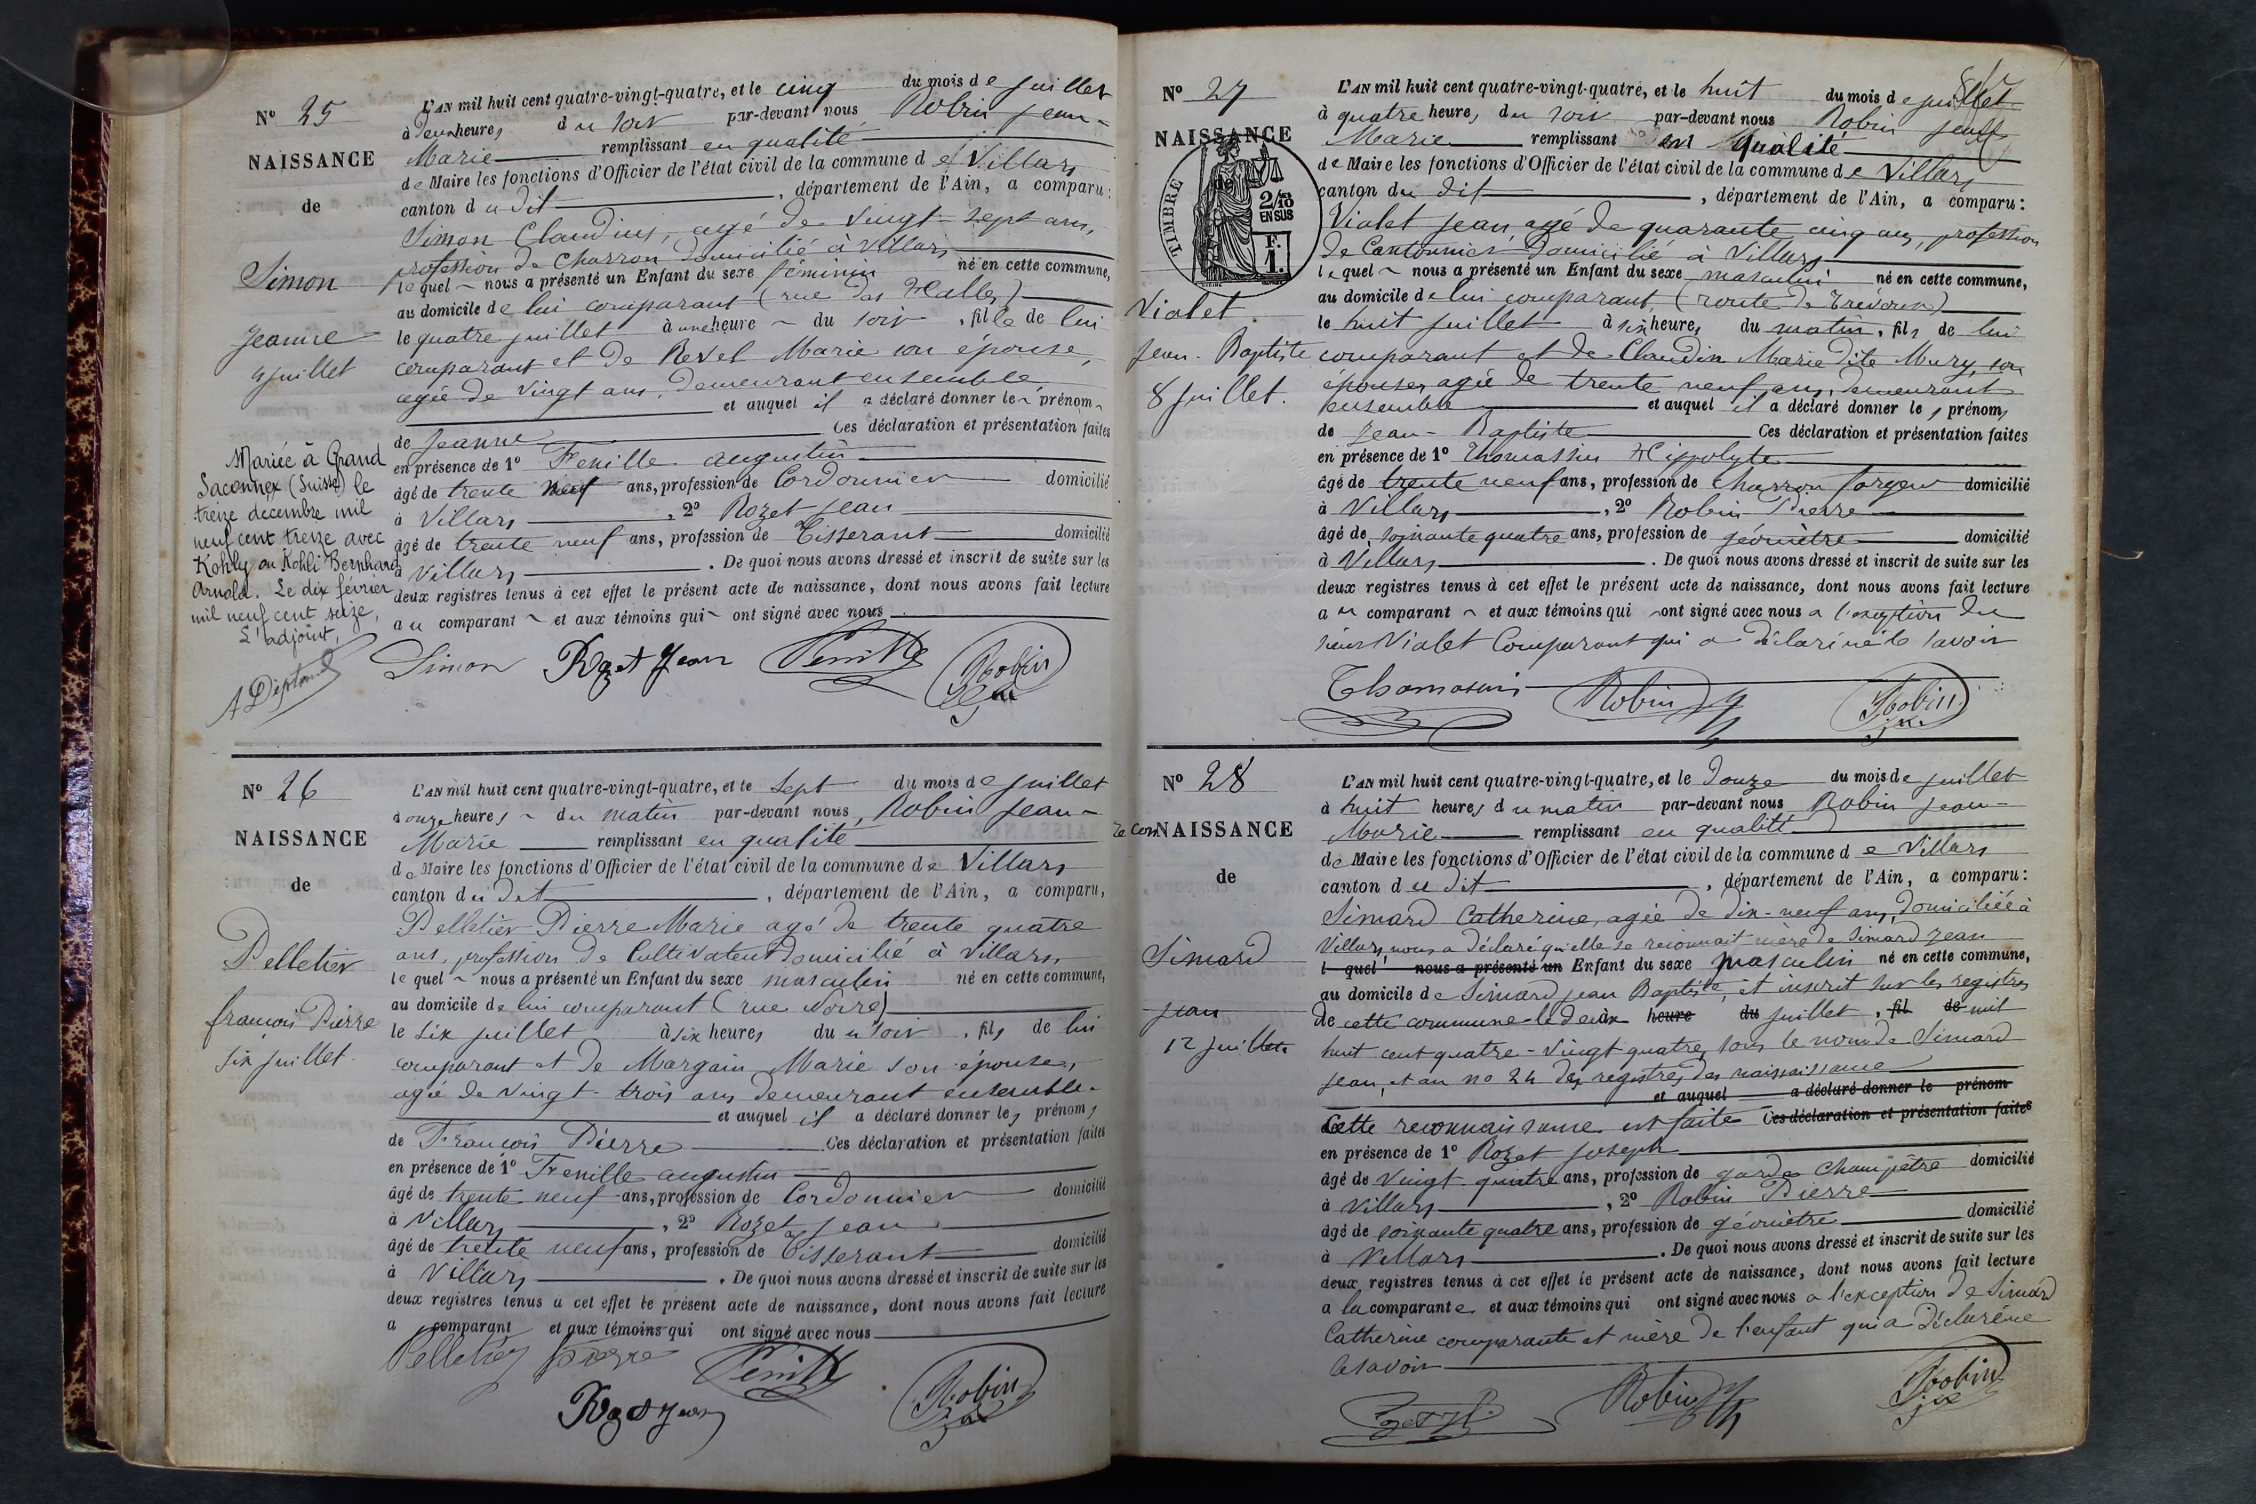 Nº 25
NAISSANCE
de
Simon
Jeanne
4 juillet
Mariée à Grand
Saconnex (Suisse) le
treize decembre mil
neuf cent treize avec
Kohly ou Kohli Bernhard
Arnold. Le dix février
mil neuf cent seize,
L'adjoint,
L'AN mil huit cent quatre-vingt-quatre, et le cinq du mois de juillet
à deux heures du soir par-devant nous Robin Jean-
Marie remplissant en qualité
de Maire les fonctions d'Officier de l'état civil de la commune de Villars
canton du dit, département de l'Ain, a comparu:
Simon Claudius, agé de vingt sept ans,
profession de Charron domicilié à Villars
lequel nous a présenté un Enfant du sexe féminin né en cette commune,
au domicile de lui comparant (rue des Halles)
le quatre juillet à une heure du soir, fille de lui
comparant et de Revel Marie son épouse,
agée de vingt ans, demeurant ensemble
et auquel il a déclaré donner le prénom
de Jeanne Ces déclaration et présentation faites
en présence de 1º Fenille augustin
âgé de trente neuf ans, profession de Cordonnier domicilié
à Villars, 2º Rozet Jean
âgé de trente neuf ans, profession de Tisserant domicilié
à Villars. De quoi nous avons dressé et inscrit de suite sur les
deux registres tenus à cet effet le présent acte de naissance, dont nous avons fait lecture
au comparant et aux témoins qui ont signé avec nous
Simon Rozet Jean Fenille Robin
Nº 26
NAISSANCE
de
Pelletier
françois Pierre
six juillet
L'AN mil huit cent quatre-vingt-quatre, et le sept du mois de juillet
à onze heures du matin par-devant nous Robin Jean-
Marie remplissant en qualité
de Maire les fonctions d'Officier de l'état civil de la commune de Villars
canton du dit, département de l'Ain, a comparu,
Pelletier Pierre Marie agé de trente quatre
ans, profession de Cultivateur domicilié à Villars
lequel nous a présenté un Enfant du sexe masculin né en cette commune,
au domicile de lui comparant (rue Noire)
le six juillet à six heures du soir, fils de lui
comparant et de Margain Marie son épouse,
agée de vingt-trois ans demeurant ensemble
et auquel il a déclaré donner les prénoms
de François Pierre Ces déclaration et présentation faites
en présence de 1º Fenille augustin
âgé de trente neuf ans, profession de Cordonnier domicilié
à Villars, 2º Rozet Jean
âgé de trente neuf ans, profession de Tisserant domicilié
à Villars. De quoi nous avons dressé et inscrit de suite sur les
deux registres tenus à cet effet le présent acte de naissance, dont nous avons fait lecture
a comparant et aux témoins qui ont signé avec nous
Pelletier Pierre Fenille Robin
Rozet Jean
Nº 27
NAISSANCE
de
TIMBRE
2/10
EN SUS
F.
1.
Violet
Jean-Baptiste
8 juillet.
L'AN mil huit cent quatre-vingt-quatre, et le huit du mois de juillet
à quatre heures du soir par-devant nous Robin Jean
Marie remplissant en qualité
de Maire les fonctions d'Officier de l'état civil de la commune de Villars
canton du dit, département de l'Ain, a comparu:
Violet Jean, agé de quarante cinq ans, profession
de Cantonnier domicilié à Villars
lequel nous a présenté un Enfant du sexe masculin né en cette commune,
au domicile de lui comparant (route de Trévoux)
le huit juillet à six heures du matin, fils de lui
comparant et de Claudin Marie dite Mury, son
épouse, agée de trente neuf ans, demeurant
ensemble et auquel il a déclaré donner les prénoms
de Jean-Baptiste Ces déclaration et présentation faites
en présence de 1º Thomassin Hippolyte
âgé de trente neuf ans, profession de Charron forgeur domicilié
à Villars, 2º Robin Pierre
âgé de soixante quatre ans, profession de géomètre domicilié
à Villars. De quoi nous avons dressé et inscrit de suite sur les
deux registres tenus à cet effet le présent acte de naissance, dont nous avons fait lecture
au comparant et aux témoins qui ont signé avec nous a l'exception du
sieur Violet Comparant qui a déclaré ne le savoir
Thomassin Robin Robin
Nº 28
NAISSANCE
de
Simard
Jean
12 juillet
L'AN mil huit cent quatre-vingt-quatre, et le douze du mois de juillet
à huit heures du matin par-devant nous Robin Jean-
Marie remplissant en qualité
de Maire les fonctions d'Officier de l'état civil de la commune de Villars
canton du dit, département de l'Ain, a comparu:
Simard Catherine, agée de dix-neuf ans, domiciliée à
Villars, nous a déclaré qu'elle se reconnait mère de Simard Jean
l quel nous a présenté un Enfant du sexe masculin né en cette commune,
au domicile de Simard Jean Baptiste, et inscrit sur les registres
de cette commune le deux heure du juillet, fil de mil
huit cent quatre-vingt quatre, sous le nom de Simard
Jean, et au no 24 des registres des naissance
et auquel a déclaré donner le prénom
Cette reconnaissance est faite Ces déclaration et présentation faites
en présence de 1º Rozet Joseph
âgé de vingt quatre ans, profession de garde Champêtre domicilié
à Villars, 2º Robin Pierre
âgé de soixante quatre ans, profession de géomètre domicilié
à Villars. De quoi nous avons dressé et inscrit de suite sur les
deux registres tenus à cet effet le présent acte de naissance, dont nous avons fait lecture
a la comparante et aux témoins qui ont signé avec nous a l'exception de Simard
Catherine comparante et mère de l'enfant qui a déclaré ne
le savoir
Robin Robin